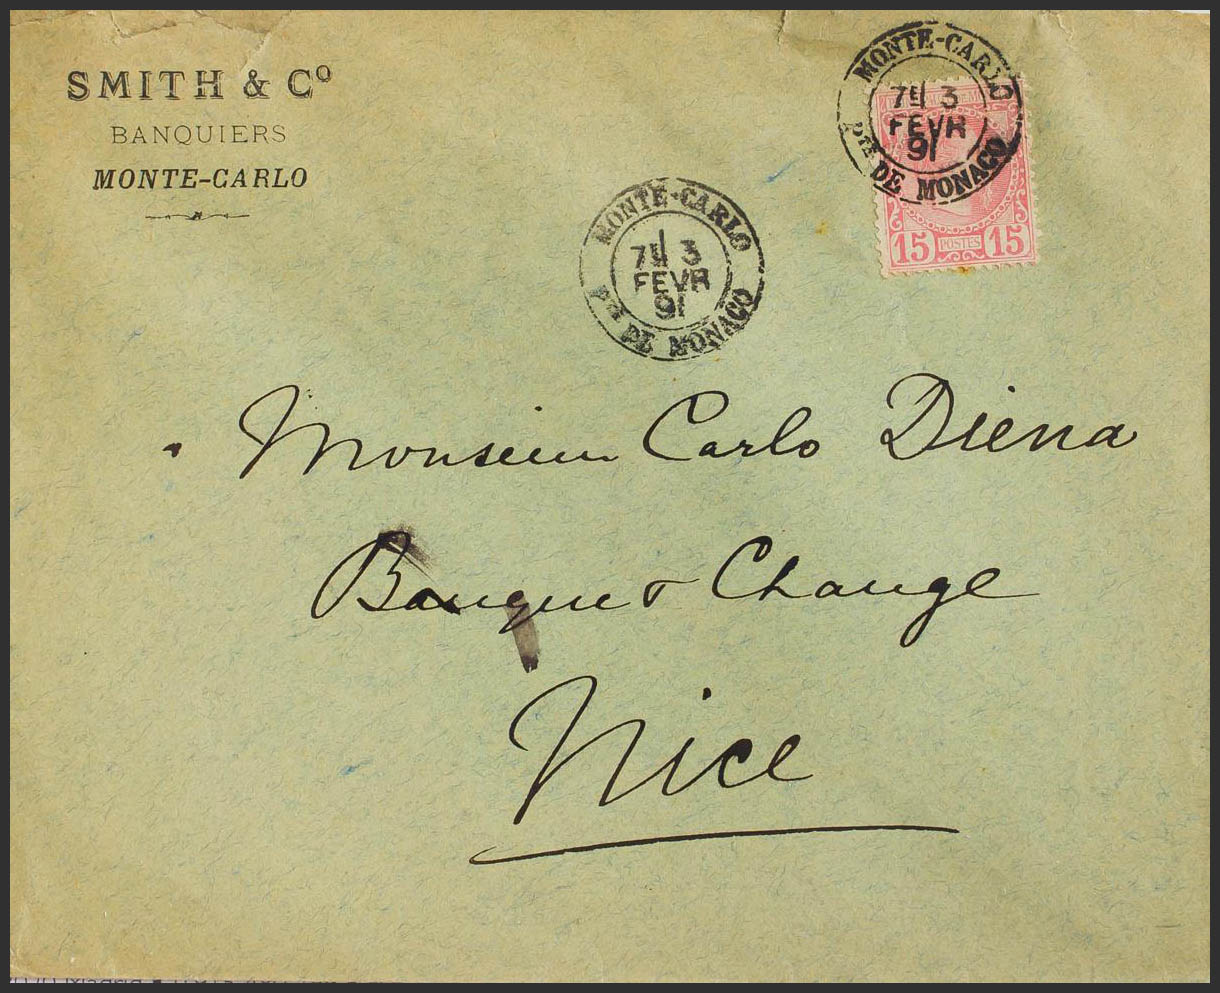 SMITH & Cº
BANQUIERS
MONTE-CARLO
MONTE-CARLO
7E 3
FEVR
91
Pté DE MONACO
15 POSTES 15
MONTE-CARLO
7E 3
FEVR
91
Pté DE MONACO
Monsieur Carlo Diena
Banque & Change
Nice